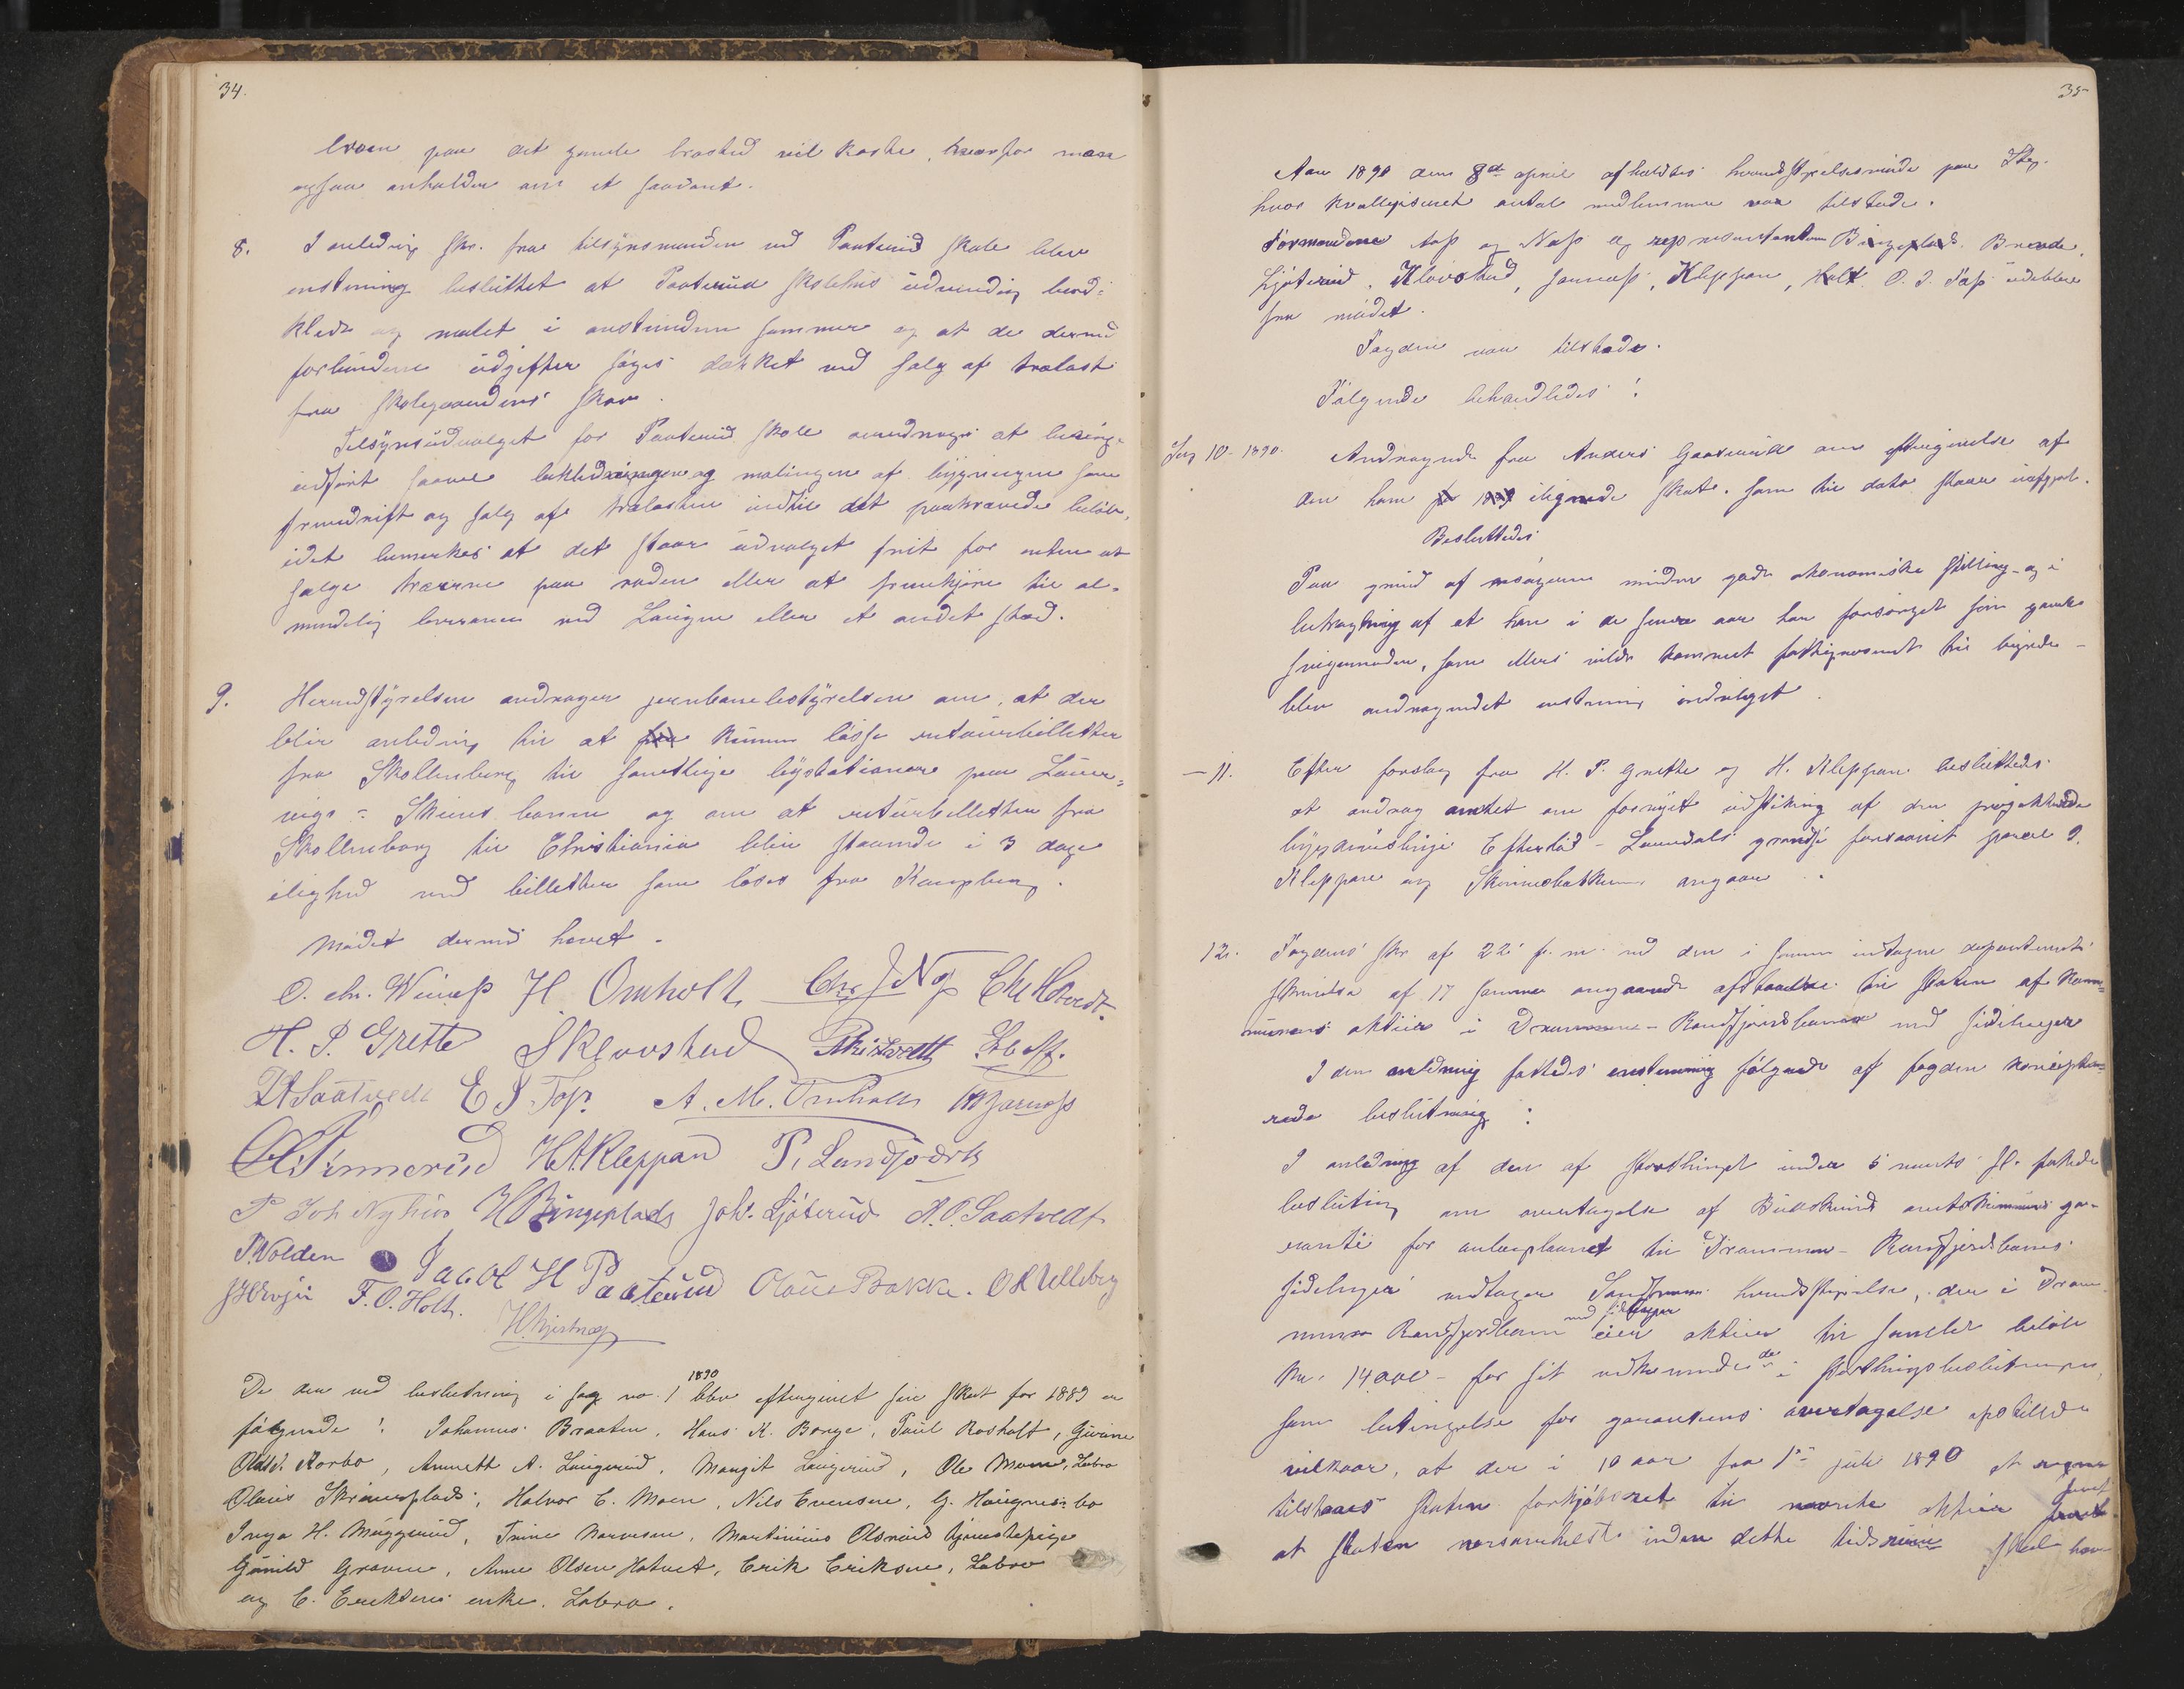 34.
broen paa det gamle brosted vil koste, hvorfor man
ogsaa anholder om et saadant.
8. I anledning skr. fra tilsynsmanden ved Paaterud skole blev
enstemmig besluttet at Paaterud skolehus udvendig bord-
klædt og malet i anstundende sommer og at de dermed
forbundne udgifter søges dækket ved salg af trælast
fra skolegaardens skov.
Tilsynsudvalget for Paaterud skole anmodes at besørge
udført saavel bekledningen og malingen af bygningen som
fremdrift og salg af trælasten indtil det paakrævede beløb,
idet bemerkes at det staar udvalget frit for enten at
sælge trærne paa roden eller at fremkjøre til al-
mindelig leverance ved Laugen eller et andet sted.
9. Herredstyrelsen andrager jernbanebestyrelsen om, at der
blir anledning til at kunne løse retourbilletter
fra Skollenborg til samtlige bystationer paa Laur-
vigs-Skiens banen og om at returbilletter fra
Skollenborg til Christiania blir staaende i 3 dage
i lighed med billetter som løses fra Kongsberg.
Mødet dermed hævet.
O. Chr. Winess H Omholt Chr J Næss
H. P. Grette S Klovstad
E J Tass. A. M. Omholt M Jarnæss
H A Kleppan P. Landsværk
P Joh Nyhus H Bingeplads Joh. Ljøterud A. O. Saatvedt
P Wolden Jacob H Paaterud Olaus Bakke. O K Ulleberg
F. O. Holt.
1890
De der ved beslutning i sag no. 1 blev eftergivet sin skat for 1889 er
følgende: Johannes Braaten, Hans K. Borge, Paul Rosholt,
Korbo, Annette A. Laugerud, Margit Laugerud, Ole Moen, Labro
Olaus Skrimsplads, Halvor C. Moen, Nils Evensen,
Inga H. Muggerud, Trine Martinius Olsrud tjenestepige
Gunild Graven, Anne Olsen Hotvet, Erik Eriksen, Labro
og E. Eriksens enke. Labro.
35
Aar 1890 den 8de april afholdtes herredstyrelsesmøde paa Steg.
hvor kvalificeret antal medlemmer var tilstede.
Formændene Aas og Næss og repræsentanterne Bingeplads, Brende,
Ljøterud, Klovstad, Jarnæss, Kleppan, Holt, O. J. Tass udeblev
fra mødet.
Fogden var tilstede.
Følgende behandledes:
Sag 10. 1890. Andragende fra Anders Gaaserud om eftergivelse af
den ham for 1889 ilignede skat, som til dato staar uafgjort.
Besluttedes
Paa grund af ansøgerens mindre gode økonomiske stilling og i
betragtning af at han i de senere aar har forsørget sin gamle
svigermoder, som ellers vilde kommet fattigvæsenet til byrde -
blev andragendet enstemmig indvilget.
- 11. Efter forslag fra H. P. Grette og H. Kleppan besluttedes
at andrag amtet om fornyet udstikning af den projekterede
bygdeveislinje Efteløt - Laurdals grændse forsaavidt parcel 9.
Kleppan og Skrimsbakken angaar.
12. Fogdens skr af 22' f. m. med den i samme indtagne departements
skrivelse af 17 samme angaaende afstaaelse til staten af kom-
munens aktier i Drammen-Randsfjordsbanen med sidelinjer
I den anledning fattedes enstemmig følgende af fogden koncipe-
rede beslutning:
I anledning af den af storthinget under 5 marts d. a. fattede
beslutning om overtagelse af Buskerud amtskommunes ga-
ranti for anlægslaanet til Drammen-Randsfjordsbanes
sidelinjer vedtager Sandsvær herredstyrelse, der i Dram
mens Randsfjordbane med sidelinjer eier aktier til samlet beløb
Kr. 14000 - for sit vedkommende de i storthingsbeslutningen
som betingelse for garantiens overtagelse opstillede
vilkaar, at der i 10 aar fra 1ste juli 1890 at regne
tilstaaes staten forkjøbsret til nævnte aktier samt
at staten naarsomhelst inden dette tidsrum skal have